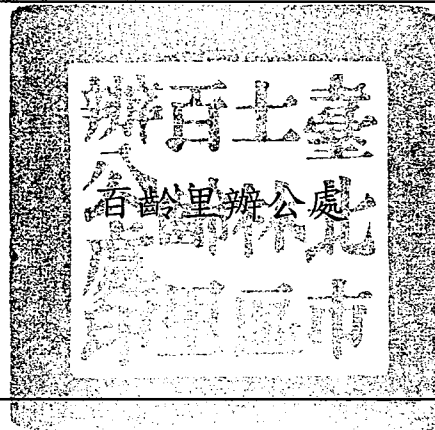 臺北市
士林區
百齡里
辦公處印
百齡里辦公處